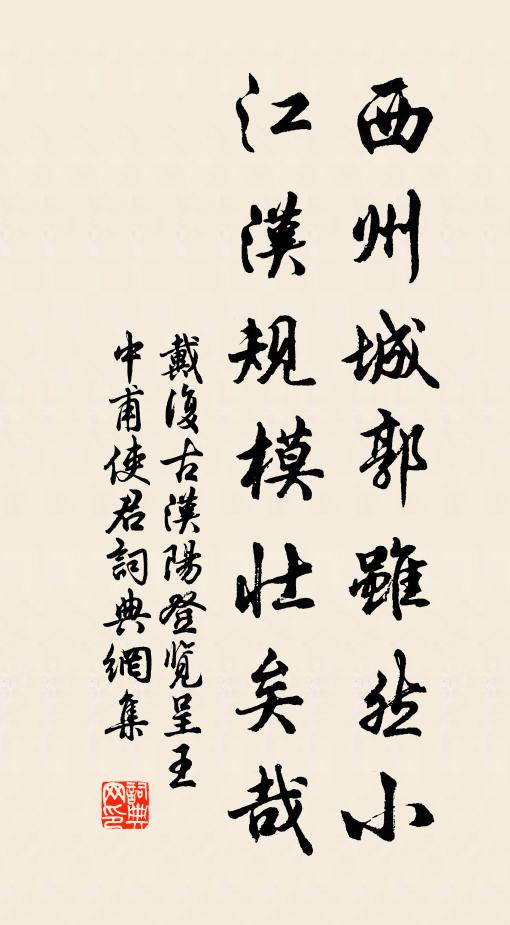 西州城郭雖然小
江漢規模壯矣哉
戴復古漢陽登覽呈王
中甫使君詞典網集
詞典
网印